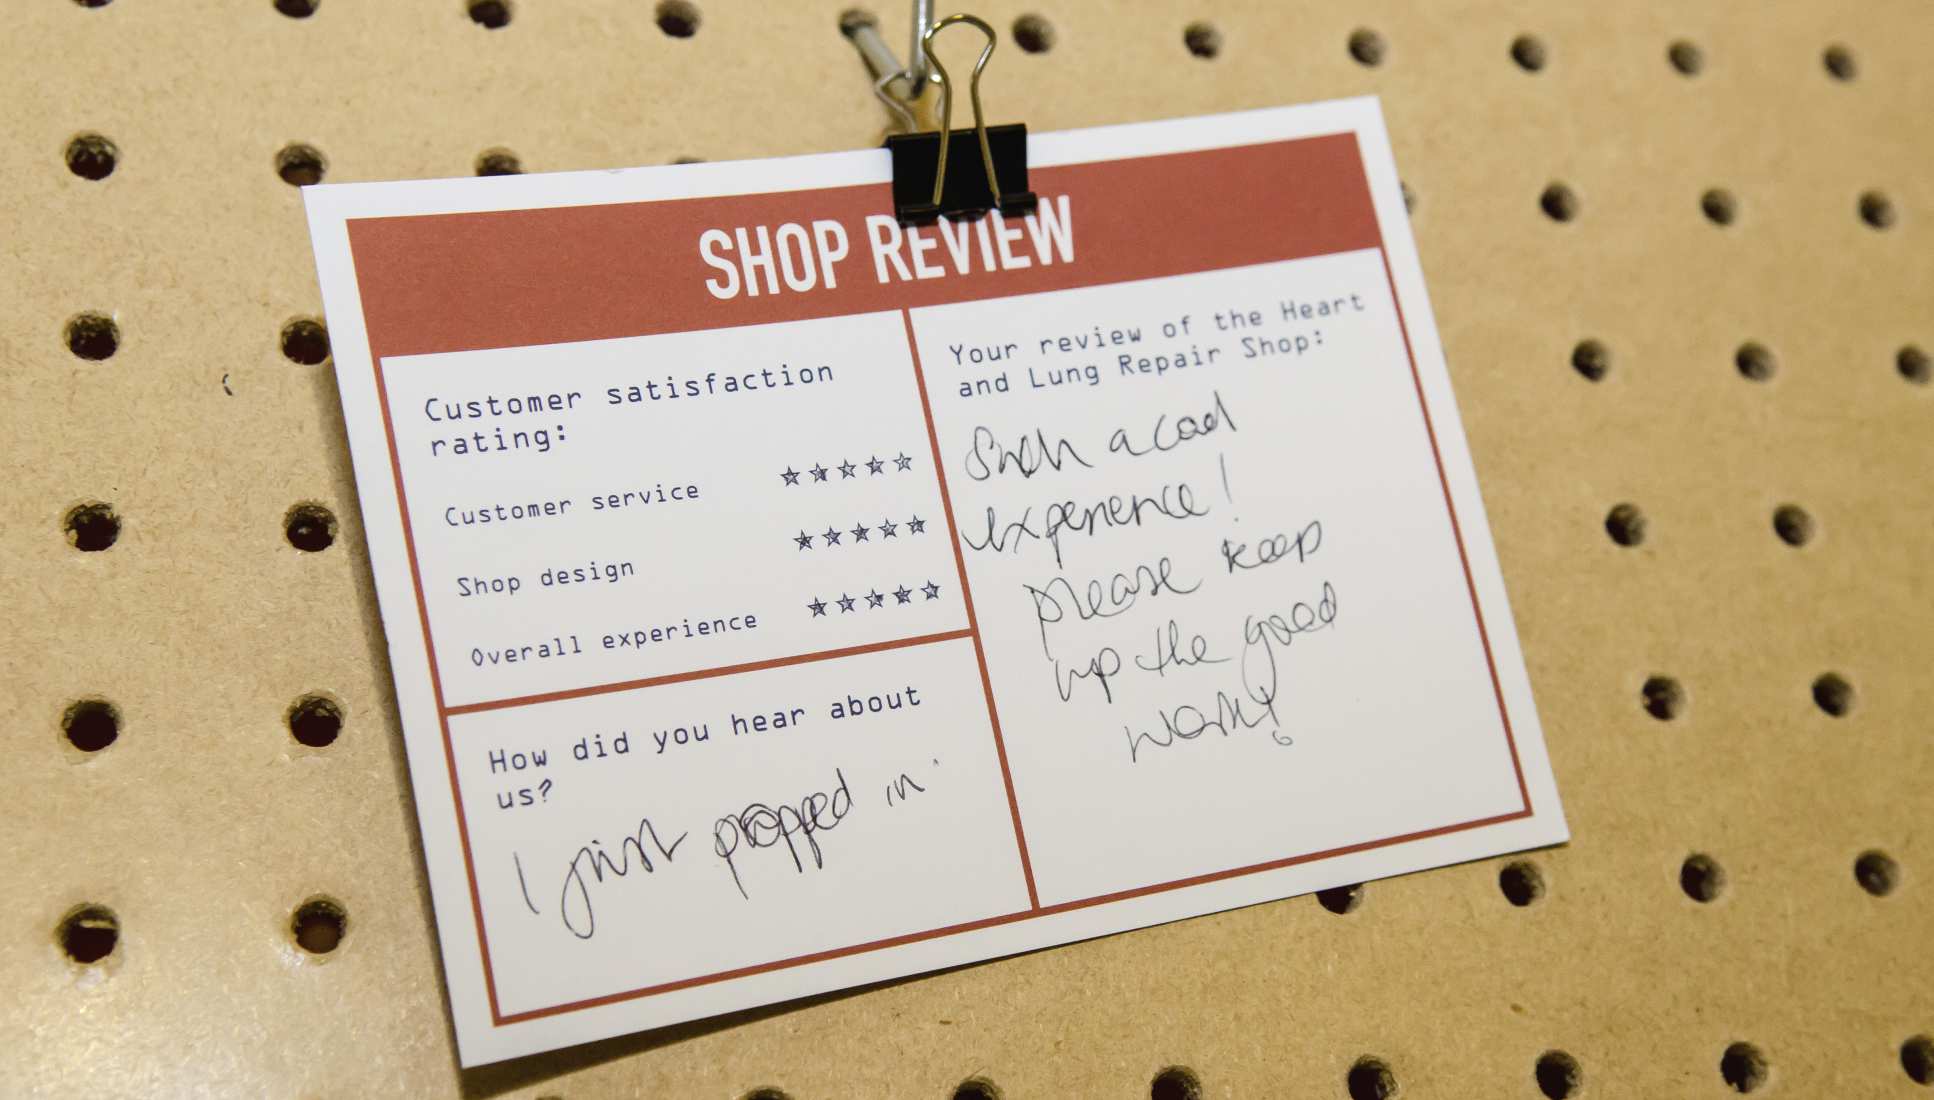 SHOP REVIEW
Customer satisfaction
rating:
Customer service ☆☆☆☆☆
Shop design ☆☆☆☆☆
Overall experience ☆☆☆☆☆
How did you hear about
us?
I just propped in.
Your review of the Heart
and Lung Repair Shop:
Such a cool
experience!
please keep
up the good
work!